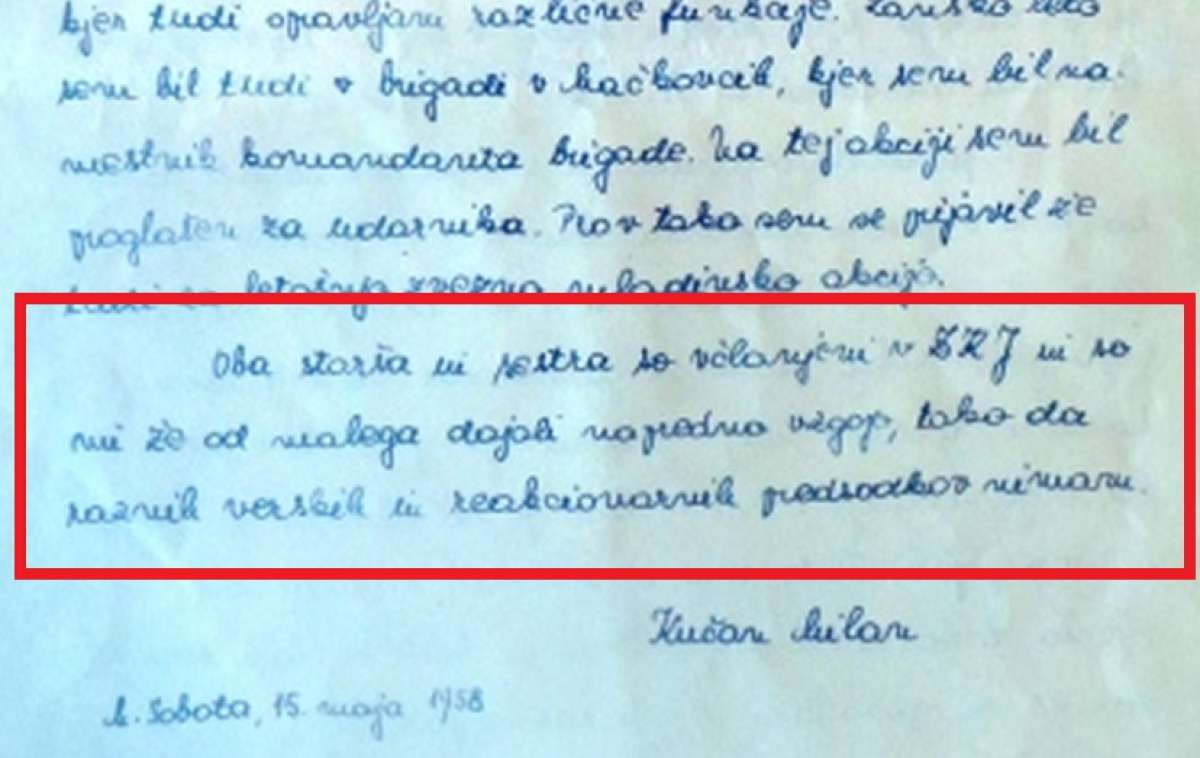 kjer tudi opravljam različne funkcije. Lansko leto
sem bil tudi v brigadi v Mačkovcih, kjer sem bil na-
mestnik komandanta brigade. Na tej akciji sem bil
proglašen za udarnika. Prav tako sem se prijavil že
tudi za letošnjo zvezno mladinsko akcijo.
Oba starša in sestra so včlanjeni v ZKJ in so
mi že od malega dajali napredno vzgojo, tako da
raznih verskih in reakcionarnih predsodkov nimam.
Kučan Milan
M. Sobota, 15. maja 1958